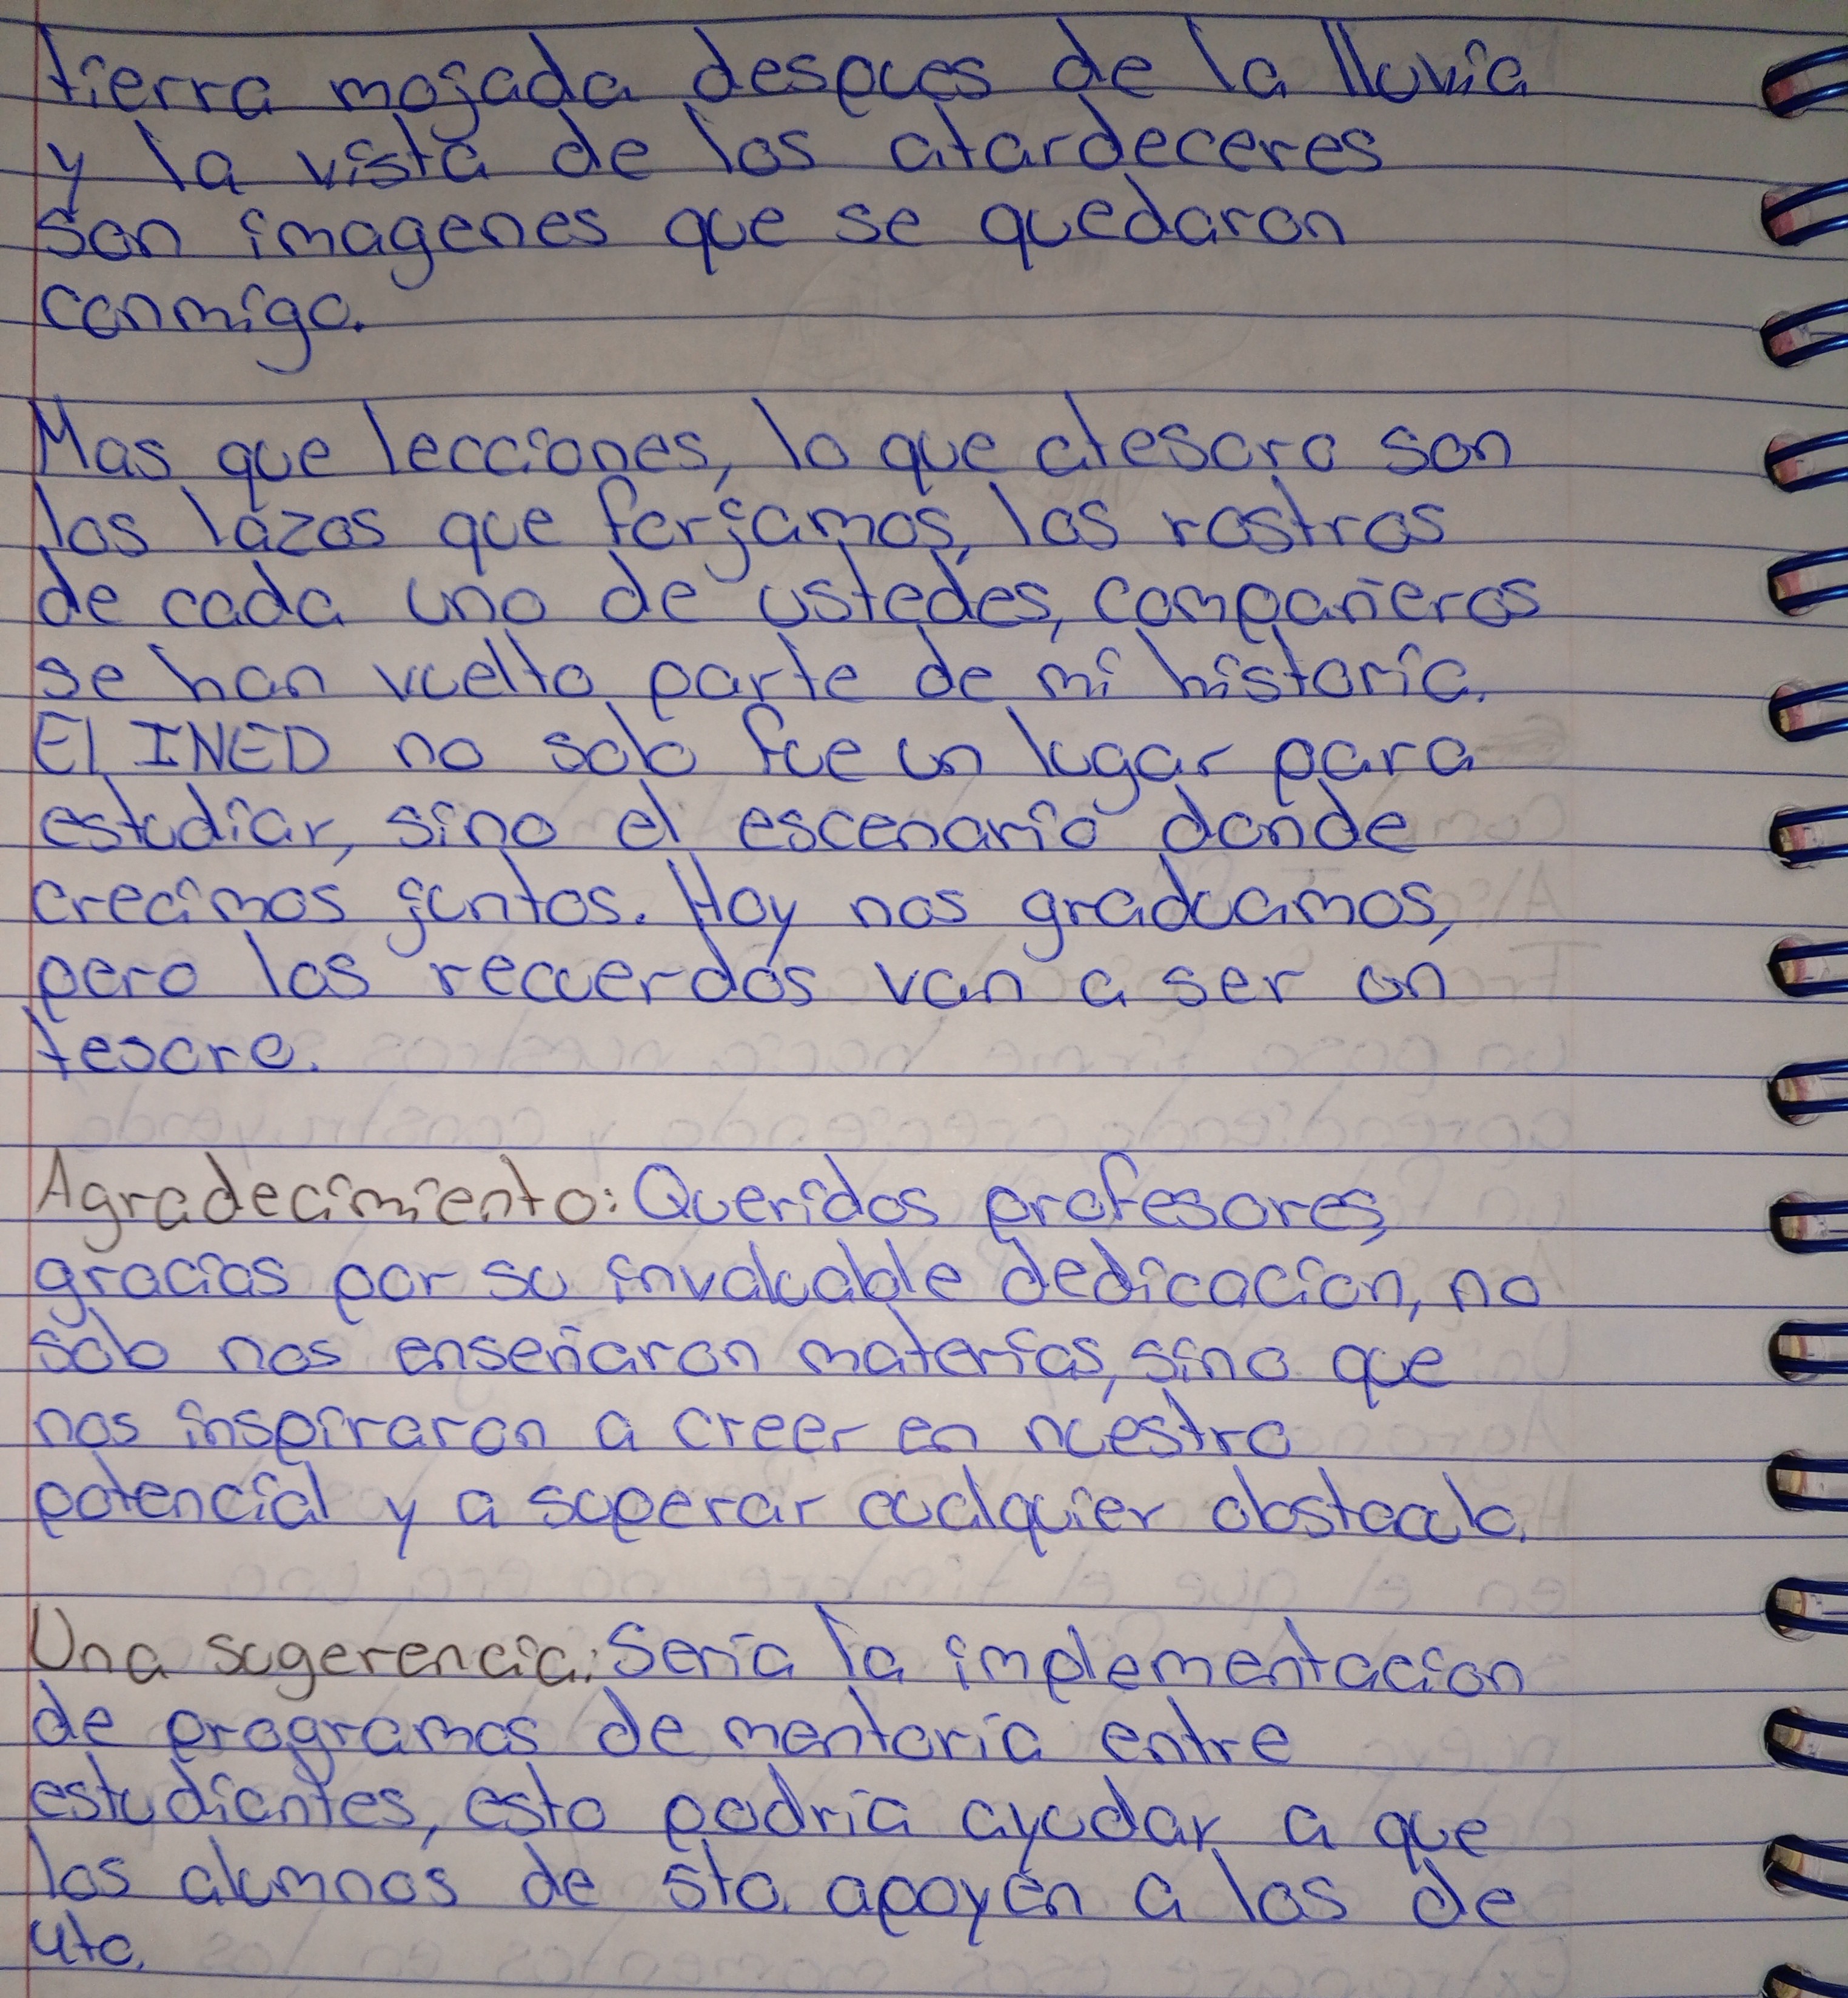 tierra mojada despues de la lluvia
y la vista de los atardeceres
son imagenes que se quedaron
conmigo.
Mas que lecciones, lo que atesoro son
los lazos que forjamos, los rostros
de cada uno de ustedes, compañeros
se han vuelto parte de mi historia.
El INED no solo fue un lugar para
estudiar, sino el escenario donde
crecimos juntos. Hoy nos graduamos,
pero los recuerdos van a ser un
tesoro.
Agradecimiento: Queridos profesores,
gracias por su invaluable dedicacion, no
solo nos enseñaron materias, sino que
nos inspiraron a creer en nuestro
potencial y a superar cualquier obstaculo.
Una sugerencia: Sería la implementacion
de programas de mentoría entre
estudiantes, esto podría ayudar a que
los alumnos de 5to. apoyen a los de
4to.